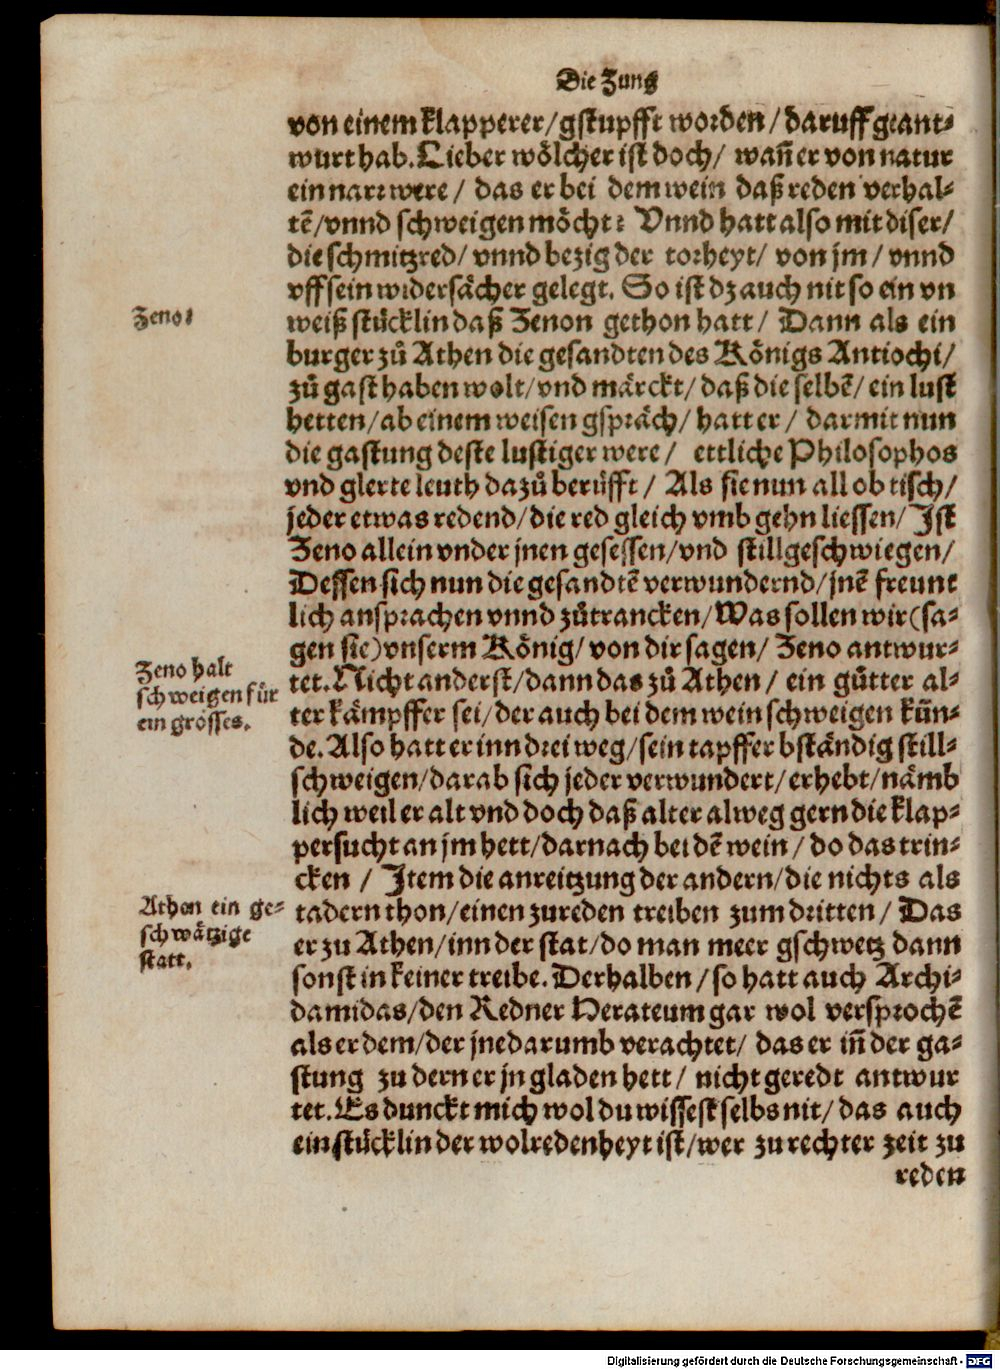 Die Zung
von einem klapperer/gstupfft worden/daruff geant-
wurt hab. Lieber wölcher ist doch/ wañ er von natur
ein narr were/ das er bei dem wein daß reden verhal-
tẽ/vnnd schweigen möcht? Vnnd hatt also mit diser/
die schmitzred/ vnnd bezig der torheyt/ von jm/ vnnd
vff sein widersächer gelegt. So ist dz auch nit so ein vn
Zeno:
weiß stücklin daß Zenon gethon hatt/ Dann als ein
burger zů Athen die gesandten des Königs Antiochi/
zů gast haben wolt/vnd märckt/daß die selbẽ/ein lust
hetten/ab einem weisen gspräch/hatt er/ darmit nun
die gastung deste lustiger were/ ettliche Philosophos
vnd glerte leuth dazů berůfft/ Als sie nun all ob tisch/
jeder etwas redend/die red gleich vmb gehn liessen/Ist
Zeno allein vnder jnen gesessen/vnd stillgeschwiegen/
Dessen sich nun die gesandtẽ verwundernd/jnẽ freunt
lich ansprachen vnnd zůtrancken/Was sollen wir(sa-
gen sie)vnserm König/von dir sagen/ Zeno antwur-
Zeno halt
schweigen für
ein grösses.
tet. Nicht anderst/dann das zů Athen/ ein gůtter al-
ter kämpffer sei/der auch bei dem wein schweigen kün-
de. Also hatt er inn drei weg/sein tapffer bständig still-
schweigen/darab sich jeder verwundert/erhebt/nämb
lich weil er alt vnd doch daß alter alweg gern die klap-
persucht an jm hett/darnach bei dẽ wein/ do das trin-
cken / Item die anreitzung der andern/die nichts als
Athen ein ge-
schwätzige
statt.
tadern thon/einen zureden treiben zum dritten/ Das
er zu Athen/inn der stat/do man meer gschwetz dann
sonst in keiner treibe. Derhalben/so hatt auch Archi-
damidas/den Redner Herateum gar wol versprochẽ
als er dem/der jne darumb verachtet/ das er iñ der ga-
stung zu dern er jn gladen hett/ nicht geredt antwur
tet. Es dunckt mich wol du wissest selbs nit/das auch
ein stücklin der wolredenheyt ist/wer zu rechter zeit zu
reden
Digitalisierung gefördert durch die Deutsche Forschungsgemeinschaft - DFG